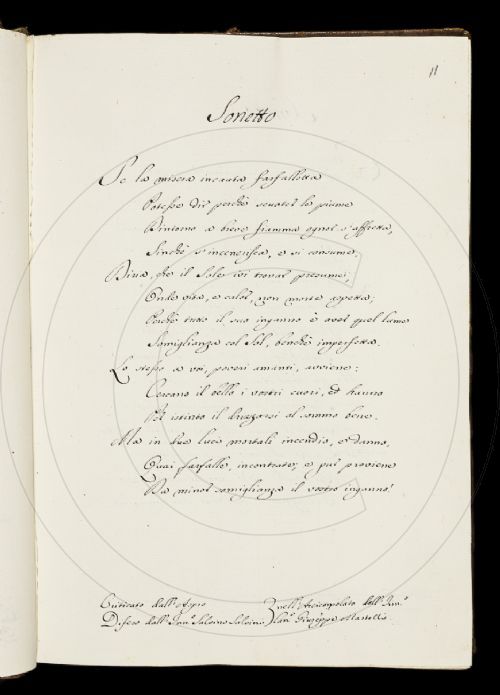 11
Sonetto
Se la misera incauta farfalletta
Potesse dir perchè scuoter le piume
D'intorno a breve fiamma ognor s'affretta,
Finchè s'incenerisca, e si consume;
Diria, che il Sole ivi trovar presume,
Onde vita, e calor, non morte aspetta;
Perchè tutto il suo inganno è aver quel lume
Somiglianza col Sol, benchè imperfetta.
Lo stesso a voi, poveri amanti, avviene:
Cercano il bello i vostri cuori, ed hanno
Per istinto il drizzarsi al sommo bene.
Ma in due luci mortali incendio, e danno,
Quai farfalle, incontrate; e pur proviene
Da minor somiglianza il vostro inganno.
Criticato dall' Apro nell' Arciconsolato dell'
Difeso dall' Salvino Salvini Giuseppe Martelli